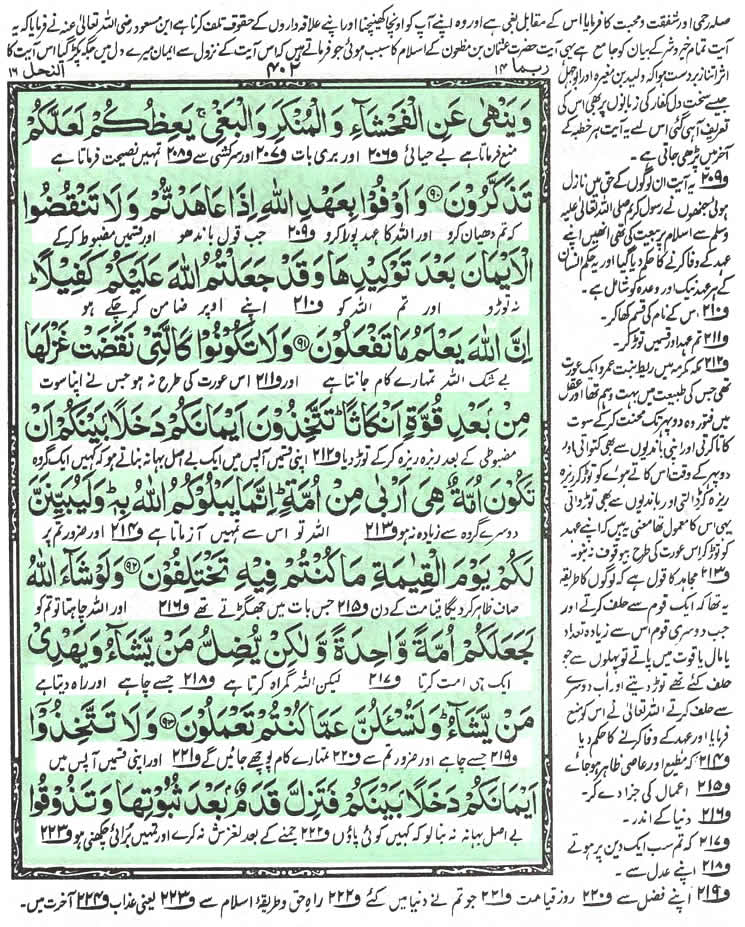 صلہ رحمی اور شفقت و محبت کا فرمایا اس کے مقابل بغی ہے اور وہ اپنے آپ کو اونچا کھینچنا اور اپنے علاقہ داروں کے حقوق تلف کرنا ہے ابن مسعود رضی اللہ تعالیٰ عنہ نے فرمایا کہ یہ
آیت تمام خیر و شر کے بیان کو جامع ہے یہی آیت حضرت عثمان بن مظعون کے اسلام کا سبب ہوئی جو فرماتے ہیں کہ اس آیت کے نزول سے ایمان میرے دل میں جگہ پکڑ گیا اس آیت کا
النحل ۱۶
۴۰۲
ربما ۱۴
اثر اتنا زبردست ہوا کہ ولید بن مغیرہ اور ابو جہل
جیسے سخت دل کفار کی زبانوں پر بھی اس کی
تعریف آ ہی گئی اس لئے یہ آیت ہر خطبہ کے
آخر میں پڑھی جاتی ہے۔
و۲۰۹ یہ آیت ان لوگوں کے حق میں نازل
ہوئی جنھوں نے رسول کریم صلی اللہ تعالیٰ علیہ
وسلم سے اسلام پر بیعت کی تھی انھیں اپنے
عہد کے وفا کرنے کا حکم دیا گیا اور یہ حکم انسان
کے ہر عہد نیک اور وعدہ کو شامل ہے۔
و۲۱۰ اس کے نام کی قسم کھا کر۔
و۲۱۱ تم عہد اور قسمیں توڑ کر۔
و۲۱۲ مکہ مکرمہ میں ریطہ بنت عمرو ایک عورت
تھی جس کی طبیعت میں بہت وہم تھا اور عقل
میں فتور وہ دوپہر تک محنت کر کے سوت
کاتا کرتی اور اپنی باندیوں سے بھی کتواتی اور
دوپہر کے وقت اس کاتے ہوئے کو توڑ کر ریزہ
ریزہ کر ڈالتی اور باندیوں سے بھی توڑواتی
یہی اس کا معمول تھا معنی یہ ہیں کہ اپنے عہد
کو توڑ کر اس عورت کی طرح بیوقوف نہ بنو۔
و۲۱۳ مجاہد کا قول ہے کہ لوگوں کا طریقہ
یہ تھا کہ ایک قوم سے حلف کرتے اور
جب دوسری قوم اس سے زیادہ تعداد
یا مال یا قوت میں پاتے تو پہلوں سے جو
حلف کئے تھے توڑ دیتے اور اب دوسرے
سے حلف کرتے اللہ تعالیٰ نے اس کو منع
فرمایا اور عہد کے وفا کرنے کا حکم دیا
و۲۱۴ کہ مطیع اور عاصی ظاہر ہو جائے
و۲۱۵ اعمال کی جزا دے کر۔
و۲۱۶ دنیا کے اندر۔
و۲۱۷ کہ تم سب ایک دین پر ہوتے
و۲۱۸ اپنے عدل سے۔
وَيَنْهٰى عَنِ الْفَحْشَآءِ وَالْمُنْكَرِ وَالْبَغْيِ ۚ يَعِظُكُمْ لَعَلَّكُمْ
منع فرماتا ہے بے حیائی و۲۰۶ اور بری بات و۲۰۷ اور سرکشی سے و۲۰۸ تمہیں نصیحت فرماتا ہے
تَذَكَّرُوْنَ ﴿۹۰﴾ وَاَوْفُوْا بِعَهْدِ اللّٰهِ اِذَا عَاهَدْتُّمْ وَلَا تَنْقُضُوا
کہ تم دھیان کرو اور اللہ کا عہد پورا کرو و۲۰۹ جب قول باندھو اور قسمیں مضبوط کر کے
الْاَيْمَانَ بَعْدَ تَوْكِيْدِهَا وَقَدْ جَعَلْتُمُ اللّٰهَ عَلَيْكُمْ كَفِيْلًا ؕ
نہ توڑو اور تم اللہ کو و۲۱۰ اپنے اوپر ضامن کر چکے ہو
اِنَّ اللّٰهَ يَعْلَمُ مَا تَفْعَلُوْنَ ﴿۹۱﴾ وَلَا تَكُوْنُوْا كَالَّتِيْ نَقَضَتْ غَزْلَهَا
بے شک اللہ تمہارے کام جانتا ہے اور و۲۱۱ اس عورت کی طرح نہ ہو جس نے اپنا سوت
مِنْۢ بَعْدِ قُوَّةٍ اَنْكَاثًا ؕ تَتَّخِذُوْنَ اَيْمَانَكُمْ دَخَلًۢا بَيْنَكُمْ اَنْ
مضبوطی کے بعد ریزہ ریزہ کر کے توڑ دیا و۲۱۲ اپنی قسمیں آپس میں ایک بے اصل بہانہ بناتے ہو کہ کہیں ایک گروہ
تَكُوْنَ اُمَّةٌ هِيَ اَرْبٰى مِنْ اُمَّةٍ ؕ اِنَّمَا يَبْلُوْكُمُ اللّٰهُ بِهٖ ؕ وَلَيُبَيِّنَنَّ
دوسرے گروہ سے زیادہ نہ ہو و۲۱۳ اللہ تو اس سے تمہیں آزماتا ہے و۲۱۴ اور ضرور تم پر
لَكُمْ يَوْمَ الْقِيٰمَةِ مَا كُنْتُمْ فِيْهِ تَخْتَلِفُوْنَ ﴿۹۲﴾ وَلَوْ شَآءَ اللّٰهُ
صاف ظاہر کر دے گا قیامت کے دن و۲۱۵ جس بات میں جھگڑتے تھے و۲۱۶ اور اللہ چاہتا تو تم کو
لَجَعَلَكُمْ اُمَّةً وَّاحِدَةً وَّلٰكِنْ يُّضِلُّ مَنْ يَّشَآءُ وَيَهْدِيْ
ایک ہی امت کرتا و۲۱۷ لیکن اللہ گمراہ کرتا ہے و۲۱۸ جسے چاہے اور راہ دیتا ہے
مَنْ يَّشَآءُ ؕ وَلَتُسْـَٔلُنَّ عَمَّا كُنْتُمْ تَعْمَلُوْنَ ﴿۹۳﴾ وَلَا تَتَّخِذُوْٓا
و۲۱۹ جسے چاہے اور ضرور تم سے و۲۲۰ تمہارے کام پوچھے جائیں گے و۲۲۱ اور اپنی قسمیں آپس میں
اَيْمَانَكُمْ دَخَلًۢا بَيْنَكُمْ فَتَزِلَّ قَدَمٌۢ بَعْدَ ثُبُوْتِهَا وَتَذُوْقُوا
بے اصل بہانہ نہ بنا لو کہ کہیں کوئی پاؤں و۲۲۲ جمنے کے بعد لغزش نہ کرے اور تمہیں برائی چکھنی ہو و۲۲۳
و۲۱۹ اپنے فضل سے و۲۲۰ روز قیامت و۲۲۱ جو تم نے دنیا میں کئے و۲۲۲ راہ حق و طریقۂ اسلام سے و۲۲۳ یعنی عذاب و۲۲۴ آخرت میں۔